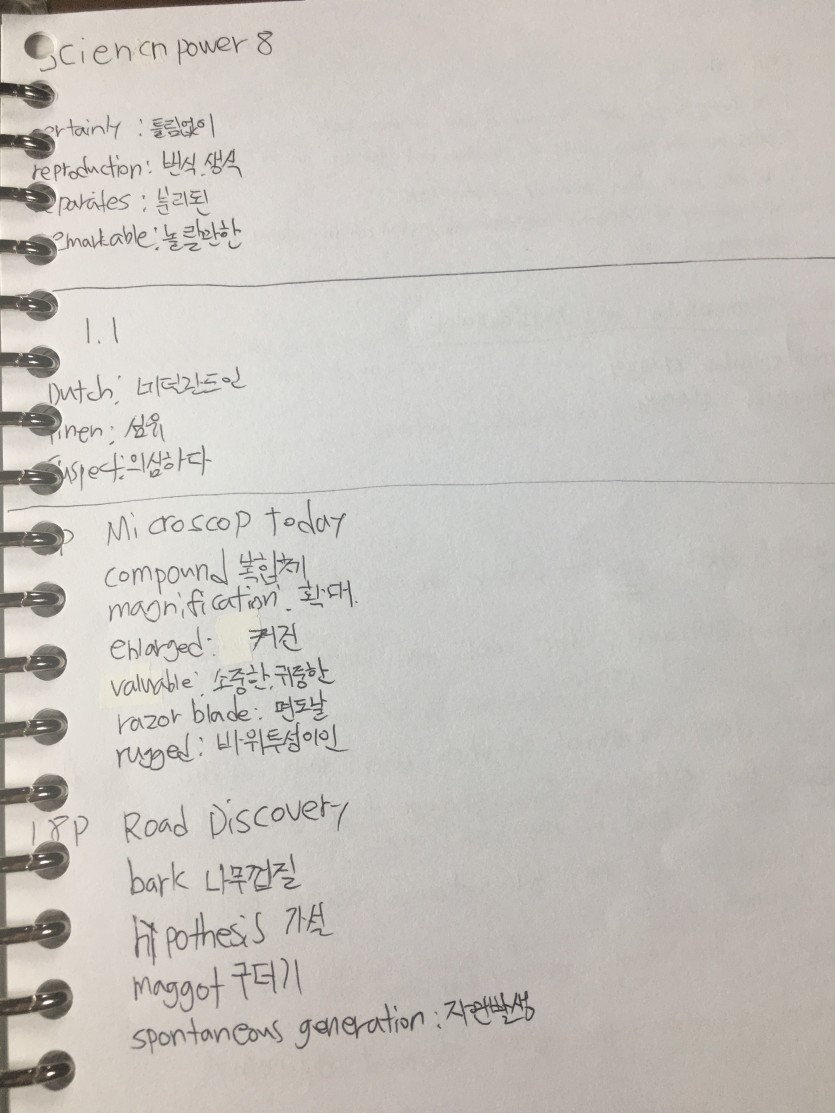 Sciencn power 8
certainly :틀림없이
reproduction : 번식, 생식
separates : 분리된
remarkable : 놀랄만한
1.1
Dutch : 네덜란드인
linen : 섬유
suspect : 의심하다
P Microscop today
compound 복합체
magnification. 확대.
enlarged : 커진
valuable : 소중한, 귀중한
razor blade : 면도날
rugged : 바위투성이인
18P Road Discovery
bark 나무껍질
hypothesis 가설
maggot 구더기
spontaneous generation : 자연발생